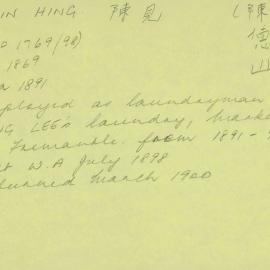 IN HING 陳見 (陳德山
1769/(98)
1869
1891
ployed as laundryman
G LEE's laundry, Market
Fremantle. from 1891-
W.A July 1898
March 1900